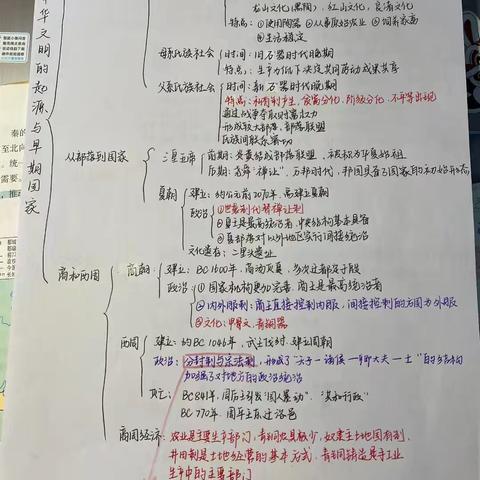 龙山文化(黑陶), 红山文化, 良渚文化
特点: ①使用陶器 ②从事原始农业 ③饲养家畜
④生活稳定
中华文明的起源与早期国家
母系氏族社会 时间: 旧石器时代晚期
特点: 生产力低下决定共同劳动成果共享
父系氏族社会 时间: 新石器时代晚期
特点: 私有制产生, 贫富分化, 阶级分化, 不平等出现
通过战争夺取财富权力
形成较大部落, 部落联盟
民族间联系密切
从部落到国家
三皇五帝 前期: 炎黄结成部落联盟, 被视为华夏始祖
后期: 尧舜"禅让", 万邦时代, 邦国具有了国家的初始形态
夏朝 建立: 约公元前2070年, 禹建立夏朝
政治 ①世袭制代替禅让制
②夏王是最高统治者, 中央结构基本具备
③夏部落对以外地区实行间接统治
文化遗存: 二里头遗址
商和西周
商朝 建立: BC 1600年, 商汤灭夏, 多次迁都于殷
政治 ①国家机构更加完善, 商王是最高统治者
②内外服制: 商王直接控制内服, 间接控制的方国为外服
③文化: 甲骨文, 青铜器
西周 建立: 约BC 1046年, 武王伐纣, 建立周朝
政治: 分封制与宗法制, 形成了"天子一诸侯一卿大夫一士"的结构
加强了对地方的政治统治
灭亡: BC 841年, 周厉王引发"国人暴动", "共和行政"
BC 770年, 周平王东迁洛邑
商周经济: 农业是主要生产部门, 青铜农具极少, 奴隶主土地国有制,
井田制是土地经营的基本方式, 青铜铸造是手工业
生产中的主要部门